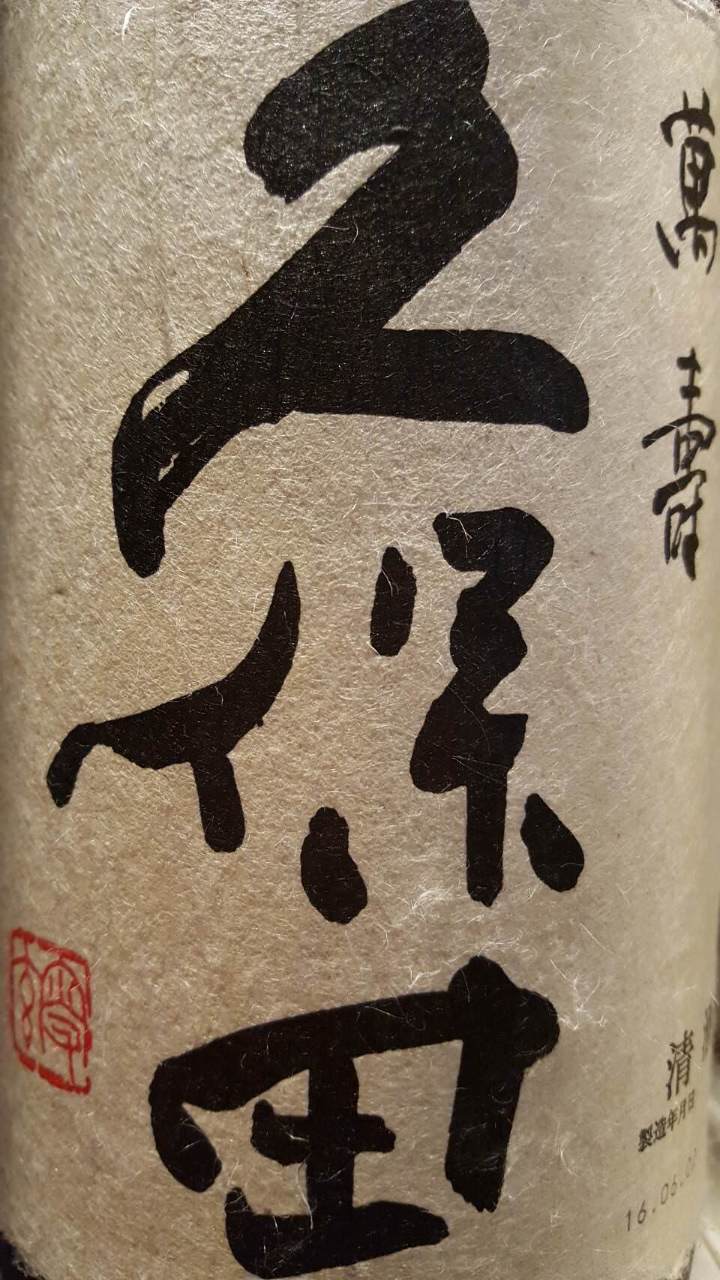 萬壽
久保田
清
製造年月日
16.06.0